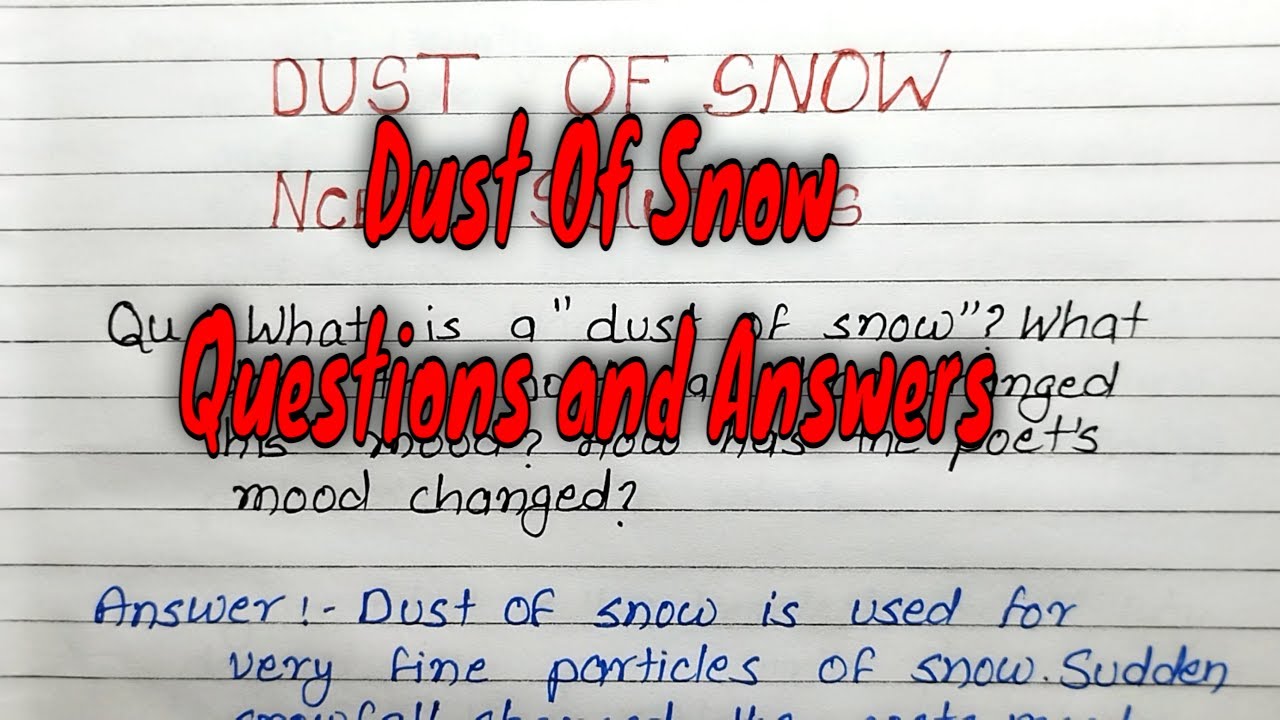 DUST OF SNOW
Dust Of Snow
Qu What is a "dust of snow"? What
Questions and Answers
his mood? How has the poet's
mood changed?
Answer:- Dust of snow is used for
very fine particles of snow. Sudden